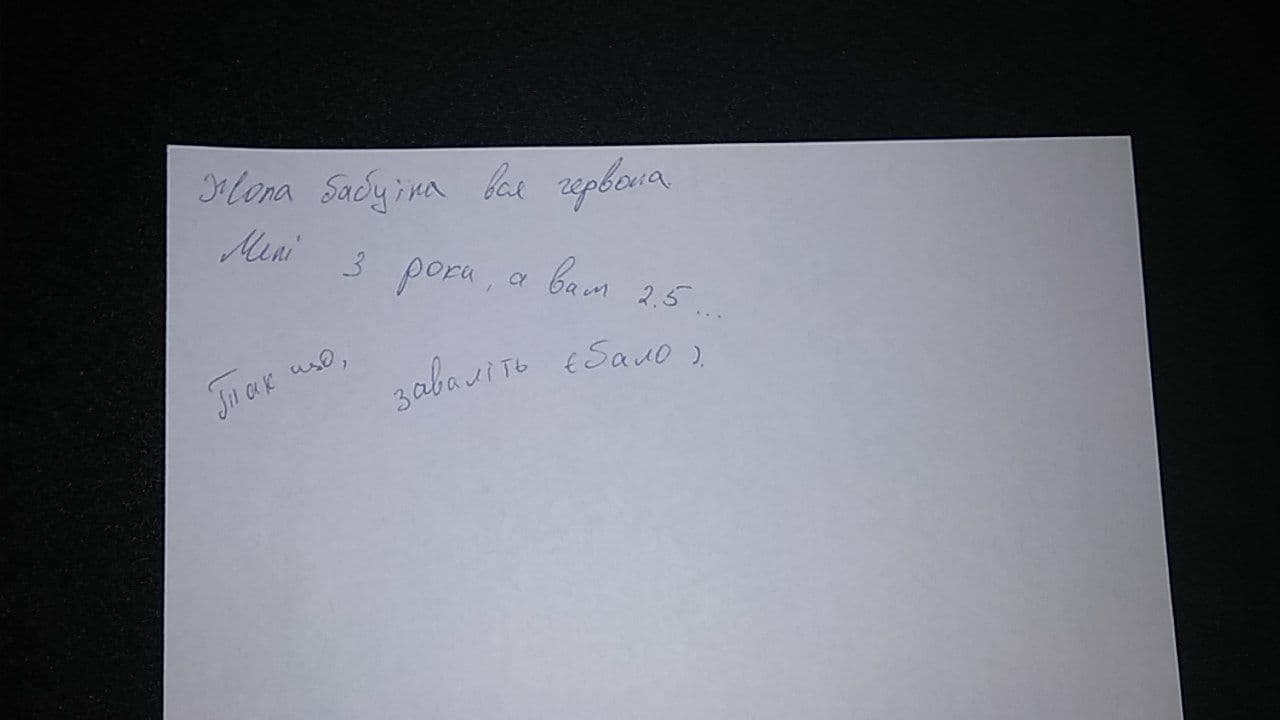 Жопа бабуіна вся червона.
Мені 3 роки, а вам 2.5...
Так що, заваліть єбало).